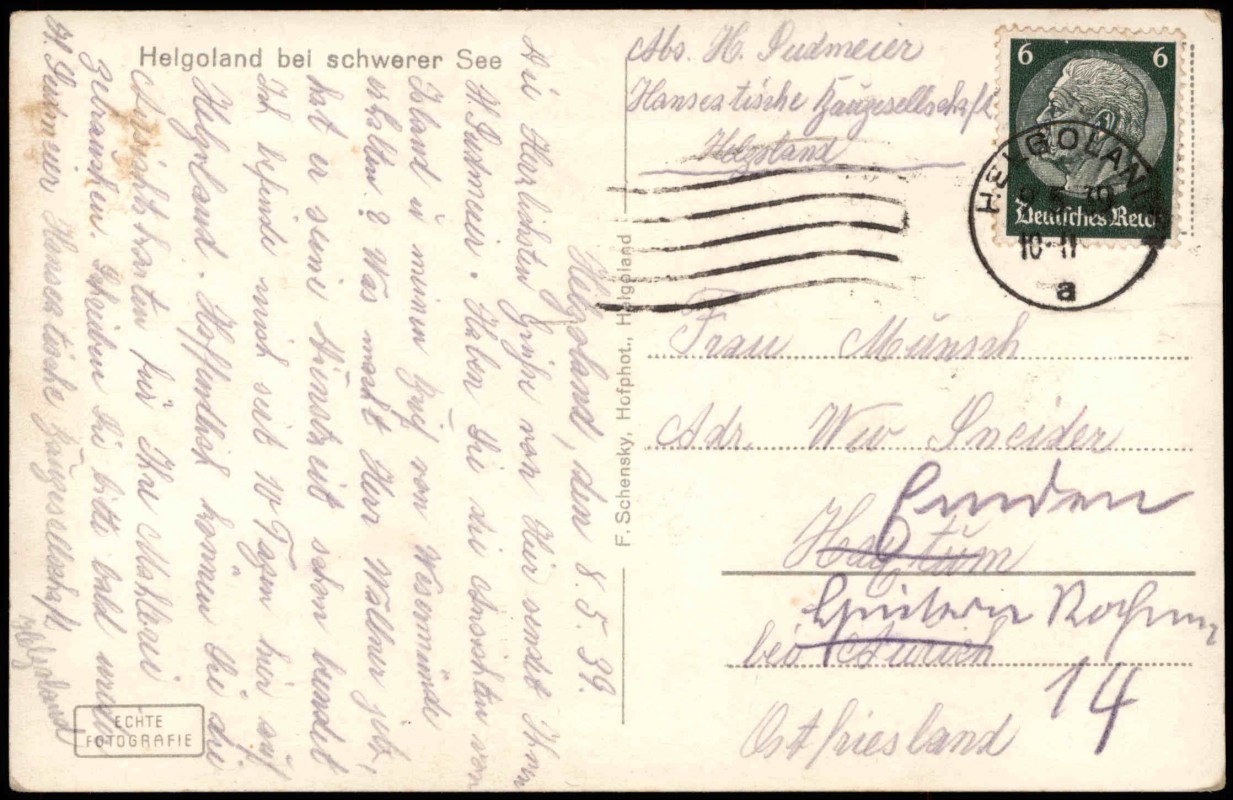 Helgoland bei schwerer See
Helgoland, den 8.5.39.
Die Herlichsten Grüße von Hier sendt Ihnen
H. Sudmeier. Haben Sie die Ansichten von
Island u meinen Brief von Wesermünde
erhalten? Was macht Herr Wallner jetz,
hat er seine Dienstzeit schon beendet
Ich befinde mich seit 10 Tagen hier auf
Helgoland. Hoffentlich können Sie die
Ansichtskarten für Ihre
gebrauchen. Schreiben Sie bitte bald wieder
H. Sudmeier Hanseatische Baugesellschaft
Helgoland
ECHTE
FOTOGRAFIE
F. Schensky, Hofphot., Helgoland
Abs. H. Sudmeier
Hanseatische Baugesellschaft
Helgoland
6 6
Deutsches Reich
HELGOLAND
8.5.39
10-11
a
Frau Münsch
Adr. Ww Sneider
Emden
Haxtum
bei Aurich
14
Ostfriesland